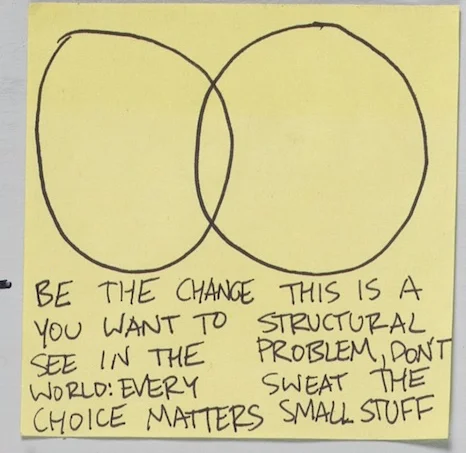 BE THE CHANGE
YOU WANT TO
SEE IN THE
WORLD: EVERY
CHOICE MATTERS
THIS IS A
STRUCTURAL
PROBLEM, DON'T
SWEAT THE
SMALL STUFF